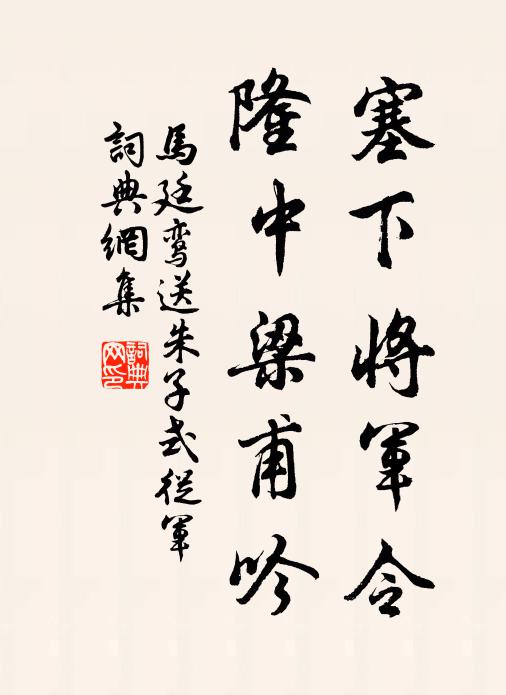 塞下將軍令
隆中梁甫吟
馬廷鸞送朱子式從軍
詞典網集
詞典
网印